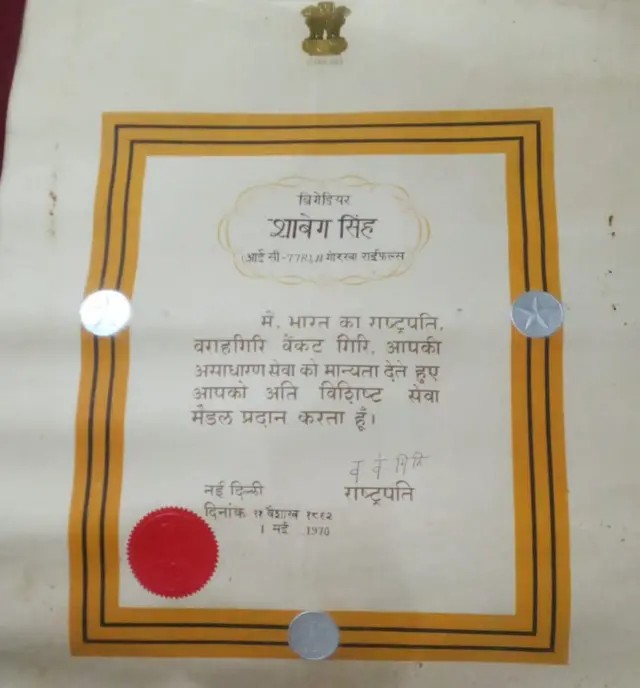 ब्रिगेडियर
शाबेग सिंह
(आई सी-7783) 11 गोरखा राईफल्स
मैं, भारत का राष्ट्रपति,
वराहगिरि वेंकट गिरि, आपकी
असाधारण सेवा को मान्यता देते हुए
आपको अति विशिष्ट सेवा
मैडल प्रदान करता हूँ।
व वे गिरि
नई दिल्ली
राष्ट्रपति
दिनांक ११ वैशाख १८९२
1 मई 1970